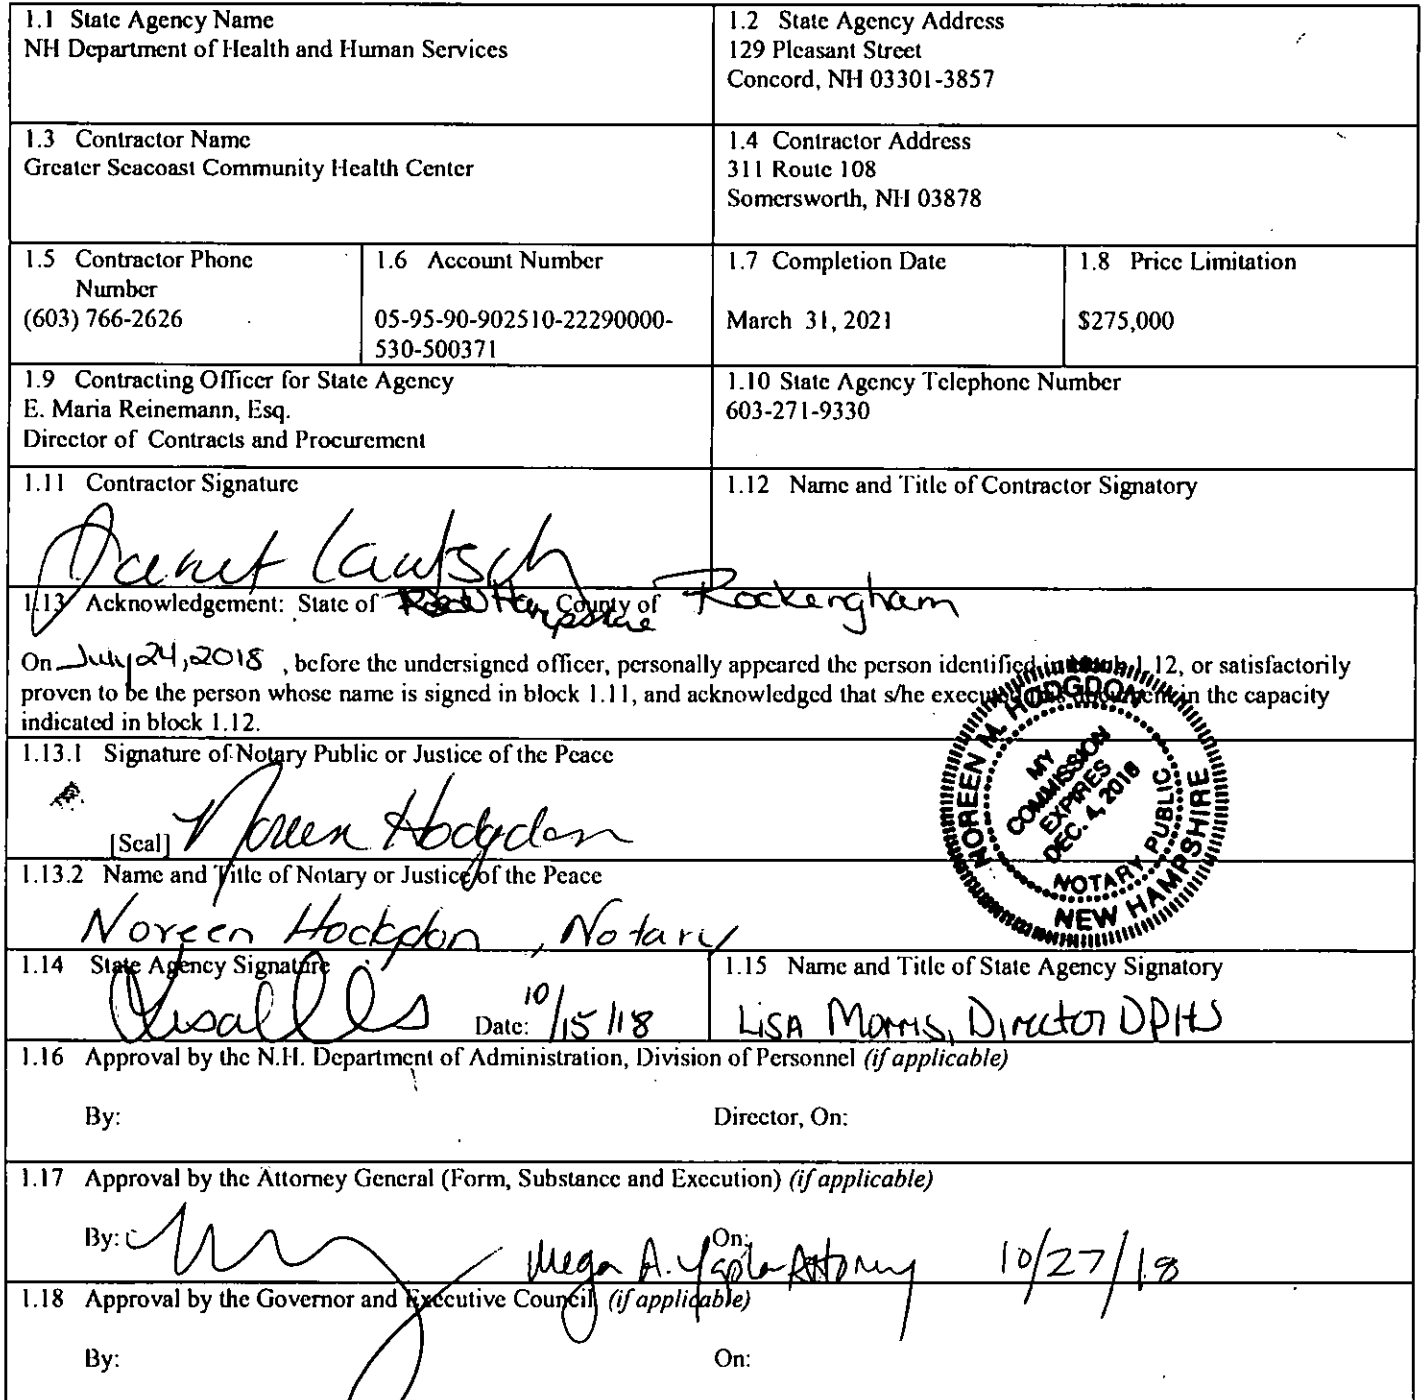 1.1 State Agency Name
NH Department of Health and Human Services
1.2 State Agency Address
129 Pleasant Street
Concord, NH 03301-3857
1.3 Contractor Name
Greater Seacoast Community Health Center
1.4 Contractor Address
311 Route 108
Somersworth, NH 03878
1.5 Contractor Phone
Number
(603) 766-2626
1.6 Account Number
05-95-90-902510-22290000-
530-500371
1.7 Completion Date
March 31, 2021
1.8 Price Limitation
$275,000
1.9 Contracting Officer for State Agency
E. Maria Reinemann, Esq.
Director of Contracts and Procurement
1.10 State Agency Telephone Number
603-271-9330
1.11 Contractor Signature
Janet Laatsch
1.12 Name and Title of Contractor Signatory
1.13 Acknowledgement: State of Hampshire County of Rockengham
On July 24, 2018 , before the undersigned officer, personally appeared the person identified in 1.12, or satisfactorily
proven to be the person whose name is signed in block 1.11, and acknowledged that s/he in the capacity
indicated in block 1.12.
NOREEN M. HODGDON
MY
COMMISSION
EXPIRES
DEC. 4, 2018
NOTARY PUBLIC
NEW HAMPSHIRE
1.13.1 Signature of Notary Public or Justice of the Peace
[Seal] Noreen Hodgdon
1.13.2 Name and Title of Notary or Justice of the Peace
Noreen Hodgdon, Notary
1.14 State Agency Signature
Date: 10/15/18
1.15 Name and Title of State Agency Signatory
LISA Morris, Director DPHS
1.16 Approval by the N.H. Department of Administration, Division of Personnel (if applicable)
By: Director, On:
1.17 Approval by the Attorney General (Form, Substance and Execution) (if applicable)
By: On: Megan A. Attorney 10/27/18
1.18 Approval by the Governor and Executive Council (if applicable)
By: On: